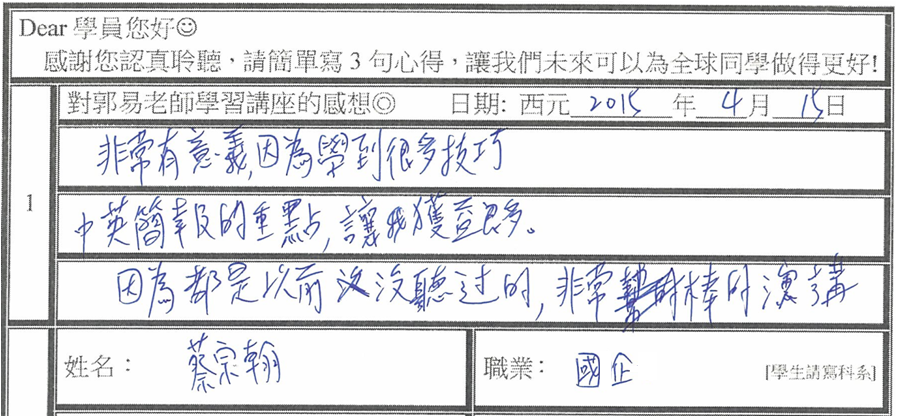 Dear 學員您好☺
感謝您認真聆聽，請簡單寫 3 句心得，讓我們未來可以為全球同學做得更好!
1
對郭易老師學習講座的感想◎ 日期: 西元 2015 年 4 月 15 日
非常有意義,因為學到很多技巧
中英簡報的重點,讓我獲益良多。
因為都是以前沒聽过的,非常棒的演講
姓名： 蔡宗翰
職業： 國企 [學生請寫科系]